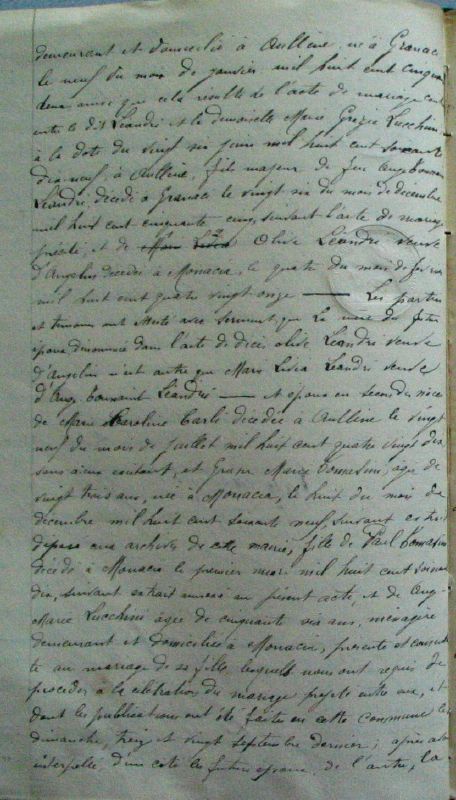 demeurant et domicilié à Aullène, né à Granace
le neuf du mois de janvier mil huit cent cinquante
deux ainsi que cela résulte de l'acte de mariage
entre le dit Léandri et la demoiselle Marie Lucchini
à la date du vingt six juin mil huit cent soixante
dix-neuf, à Aullène, fils majeur de feu Ange Toussaint
Léandri, décédé à Granace le vingt six du mois de décembre
mil huit cent cinquante cinq, suivant l'acte de mariage
précité, et de Olive Léandri veuve
d'Angelin décédée à Monacia, le quatre du mois de
mil huit cent quatre vingt onze — Les parties
et témoins ont attesté avec serment que la mère du futur
époux dénommée dans l'acte de décès olive Léandri veuve
d'Angelin n'est autre que Marie Livia Léandri veuve
d'Ange Toussaint Léandri — et époux en secondes noces
de Marie Caroline Carli décédée à Aullène le vingt
neuf du mois de juillet mil huit cent quatre vingt dix
sans aucun, et Marie Tomasini, âgée de
vingt trois ans, née à Monacia, le huit du mois de
décembre mil huit cent soixante neuf, suivant extrait
déposé aux archives de cette mairie, fille de Paul Tomasini
décédé à Monacia le premier mars mil huit cent soixante
dix, suivant extrait annexé au présent acte, et de Ange
Marie Lucchini âgée de cinquante six ans, ménagère
demeurant et domiciliée à Monacia, présente et consentante
au mariage de sa fille, lesquels nous ont requis de
procéder à la célébration du mariage projeté entre eux, et
dont les publications ont été faites en cette commune les
dimanche, treize et vingt septembre dernier; après avoir
interpellé d'un côté les futurs époux, de l'autre, la